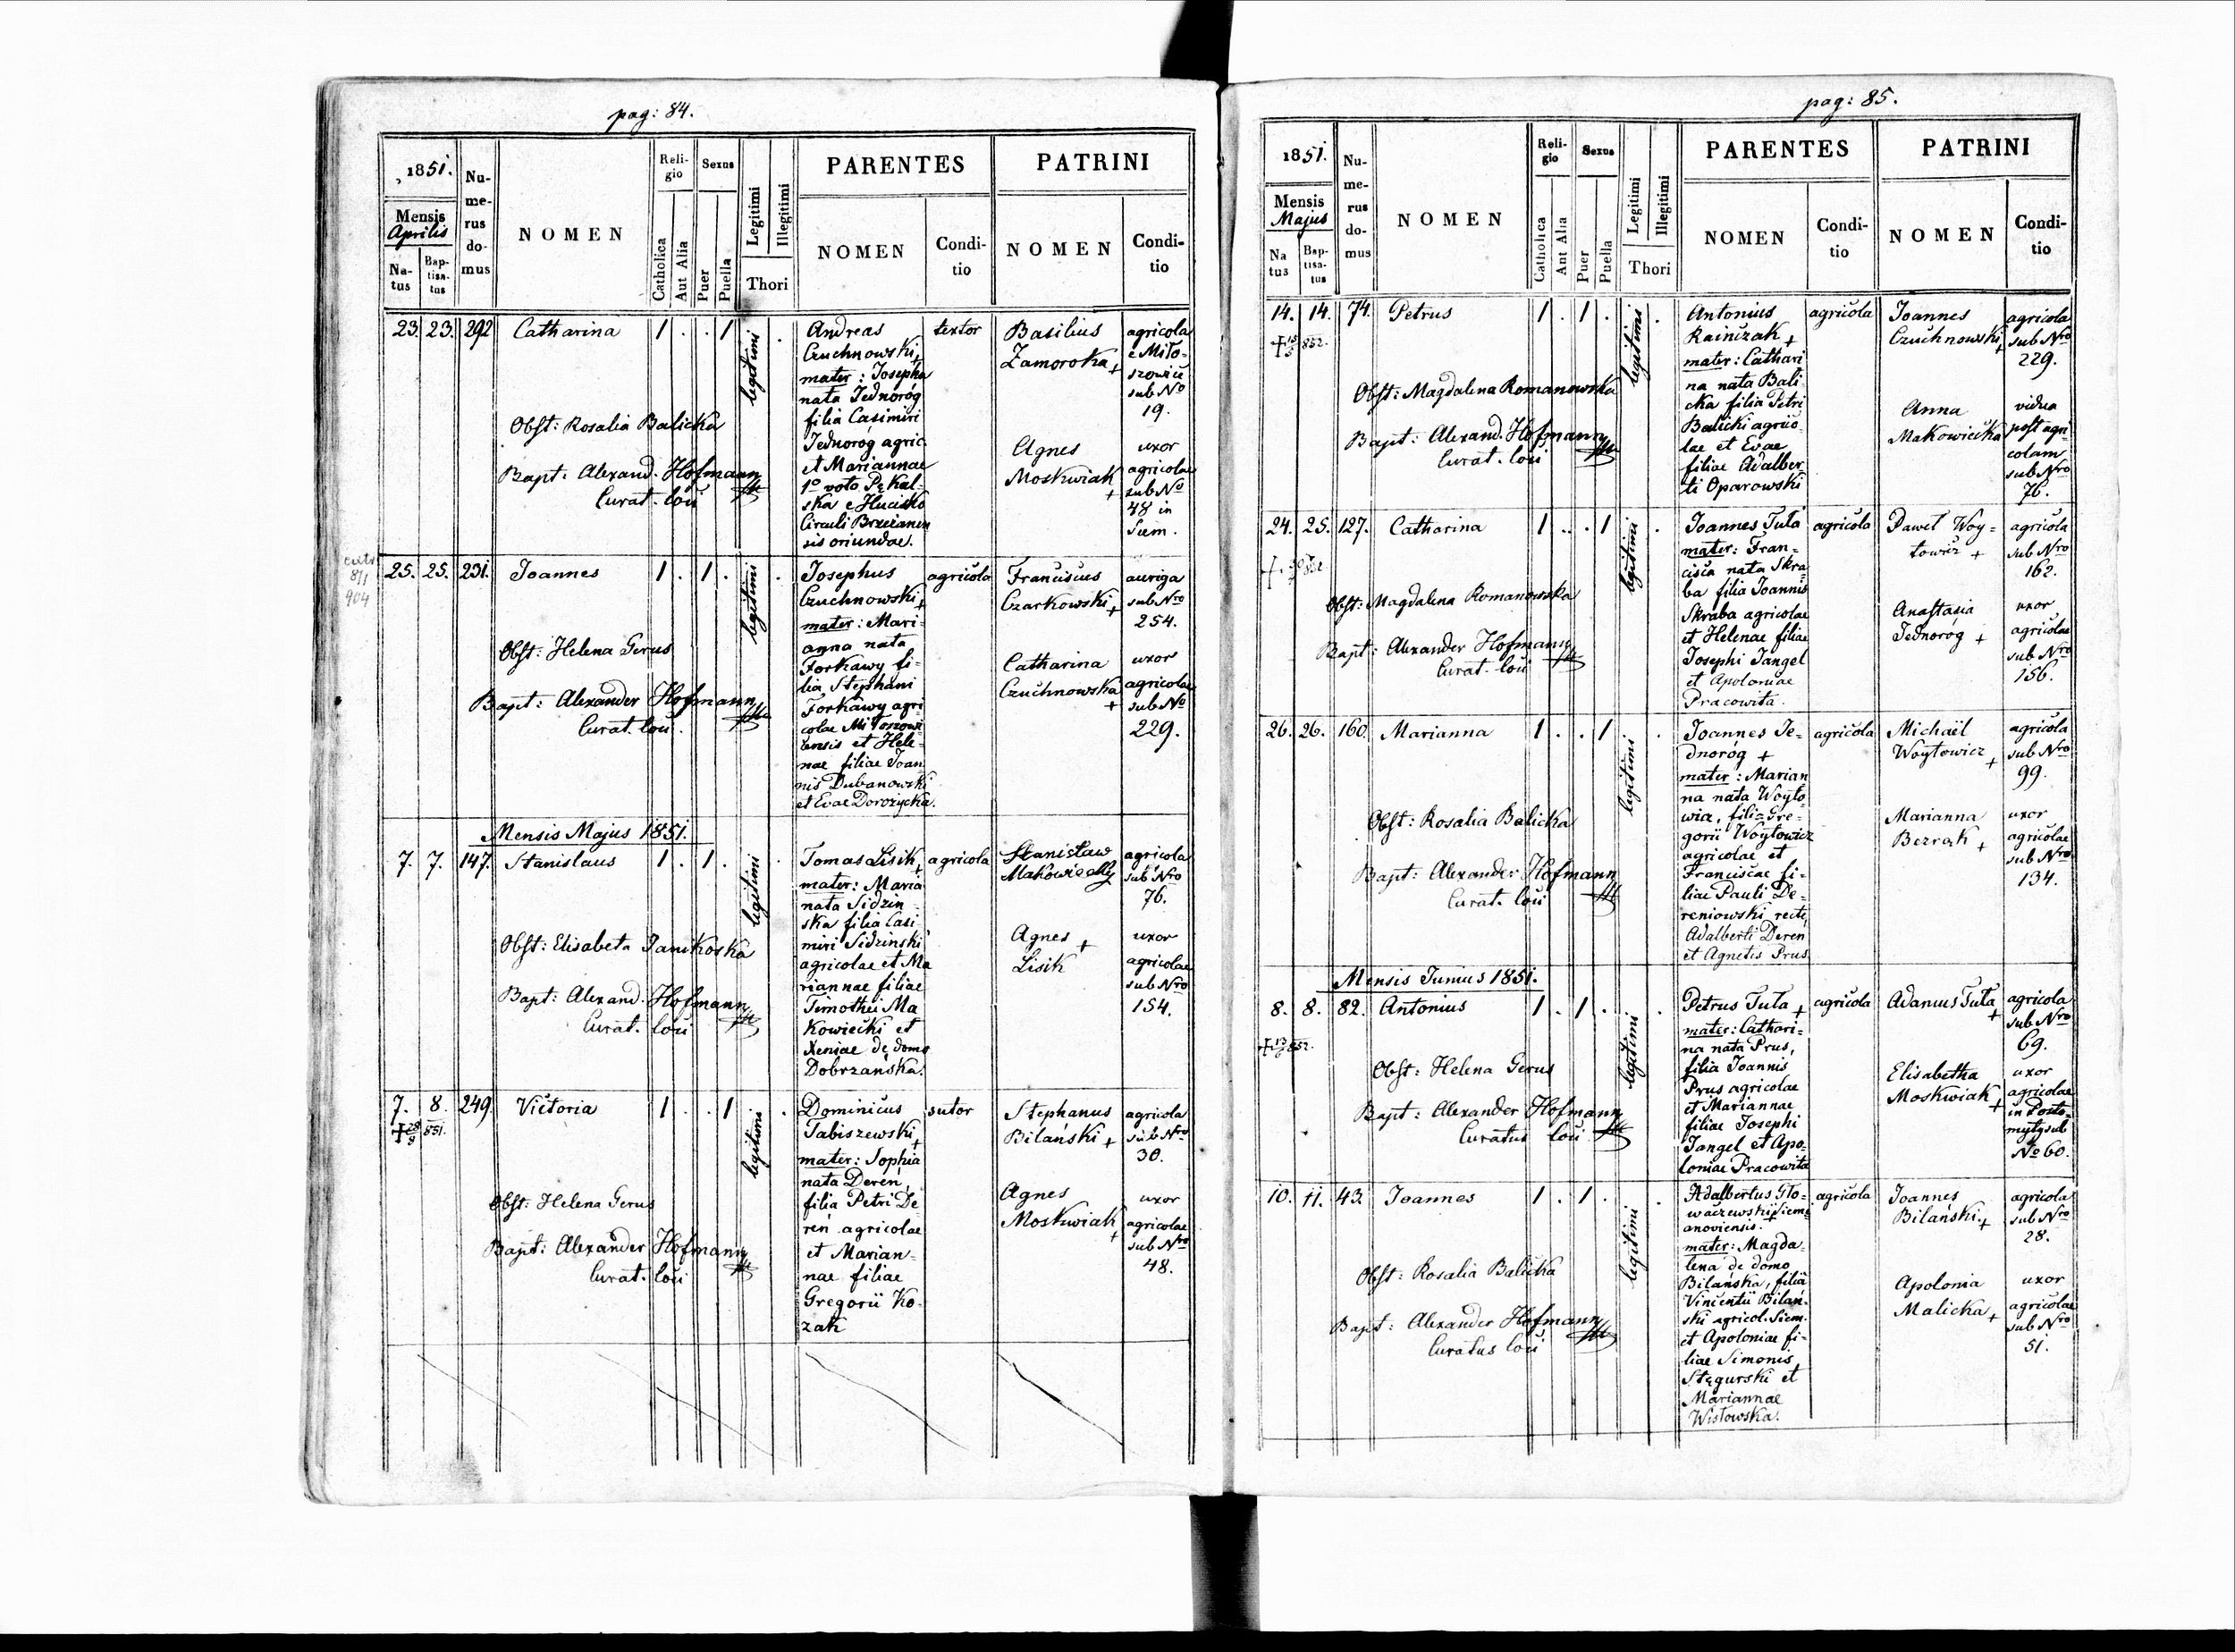 pag: 84.
1851.
Mensis
Aprilis
Na-
tus
Bap-
tisa-
tus
Nu-
me-
rus
do-
mus
NOMEN
Reli-
gio
Catholica
Aut Alia
Sexus
Puer
Puella
Legitimi
Illegitimi
Thori
PARENTES
NOMEN
Condi-
tio
PATRINI
NOMEN
Condi-
tio
23. 23. 292 Catharina 1 . . 1 legitimi .
Obst: Rosalia Balicka
Bapt: Alexand. Hofmann
Curat. loci
Andreas
Czuchnowski +
mater: Josepha
nata Jednoróg
filia Casimiri
Jednorog agric.
et Mariannae
1º voto Pękal-
ska e Hucisko
Circuli Brzezanen
sis oriundae.
textor
Basilius
Zamoroka +
agricola
e Miło-
szowic
sub Nº
19.
Agnes
Moskwiak
+
uxor
agricolae
sub Nº
48 in
Siem.
811
904
25. 25. 231. Joannes 1 . 1 . legitimi .
Obst: Helena Gerus
Bapt: Alexander Hofmann
Curat. loci.
Josephus
Czuchnowski +
mater: Mari-
anna nata
Forkawy fi-
lia Stephani
Forkawy agri
colae Miloszowi
censis et Hele-
nae filiae Joan
nis Dubanowski
et Evae Dorożycka.
agricola
Franciscus
Czarkowski +
auriga
sub Nro
254.
Catharina
Czuchnowska
+
uxor
agricolae
sub Nº
229.
Mensis Majus 1851.
7. 7. 147. Stanislaus 1 . 1 . legitimi .
Obst: Elisabeta Panikoska
Bapt: Alexand. Hofmann
Curat. loci
Tomas Lisik +
mater: Maria
nata Sidzin-
ska filia Casi
miri Sidzinski
agricolae et Ma
riannae filiae
Timothei Ma
kowiecki et
Xeniae de domo
Dobrzańska.
agricola
Stanisław
Makowiecky
agricola
sub Nro
76.
Agnes +
Lisik
uxor
agricolae
sub Nro
154.
7. 8. 249. Victoria 1 . . 1 legitimi .
851.
Obst: Helena Gerus
Bapt: Alexander Hofmann
Curat. loci
Dominicus
Tabiszewski +
mater: Sophia
nata Deren,
filia Petri De-
reń agricolae
et Marian-
nae filiae
Gregorii Ko-
zak
sutor
Stephanus
Bilański +
agricola
sub Nro
30.
Agnes
Moskwiak
+
uxor
agricolae
sub Nro
48.
pag: 85.
1851.
Mensis
Majus
Na
tus
Bap-
tisa-
tus
Nu-
me-
rus
do-
mus
NOMEN
Reli-
gio
Catholica
Aut Alia
Sexus
Puer
Puella
Legitimi
Illegitimi
Thori
PARENTES
NOMEN
Condi-
tio
PATRINI
NOMEN
Condi-
tio
14. 14. 74. Petrus 1 . 1 . legitimi .
852.
Obst: Magdalena Romanowska
Bapt: Alexand. Hofmann
Curat. loci
Antonius
Rainczak +
mater: Cathari
na nata Bali
cka filia Petri
Balicki agrico-
lae et Evae
filiae Adalber
ti Oparowski
agricola
Joannes
Czuchnowski
+
agricola
sub Nro
229.
Anna
Makowiecka
vidua
post agri
colam
sub Nro
76.
24. 25. 127. Catharina 1 . . 1 legitimi .
Obst: Magdalena Romanowska
Bapt: Alexander Hofmann
Curat. loci
Joannes Tuta
mater: Fran-
cisca nata Skra
ba filia Joannis
Skraba agricolae
et Helenae filiae
Josephi Jangel
et Apoloniae
Pracowita.
agricola
Paweł Woy=
towicz +
agricola
sub Nro
162.
Anastasia
Jednorog +
uxor
agricolae
sub Nro
156.
26. 26. 160. Marianna 1 . . 1 legitimi .
Obst: Rosalia Balicka
Bapt: Alexander Hofmann
Curat. loci
Joannes Je-
dnoróg +
mater: Marian
na nata Woyto
wia, filia Gre-
gorii Woytowicz
agricolae et
Franciscae fi-
liae Pauli De-
reniowski recte
Adalberti Deren
et Agnetis Prus.
agricola
Michaël
Woytowicz +
agricola
sub Nro
99.
Marianna
+
uxor
agricolae
sub Nro
134.
Mensis Junius 1851.
8. 8. 82. Antonius 1 . 1 . legitimi .
852.
Obst: Helena Gerus
Bapt: Alexander Hofmann
Curatus loci
Petrus Tuta +
mater: Cathari=
na nata Prus,
filia Joannis
Prus agricolae
et Mariannae
filiae Josephi
Jangel et Apo-
loniae Pracowita
agricola
Adamus Tuta
+
agricola
sub Nro
69.
Elisabetha
Moskwiak +
uxor
agricolae
in Porto-
myty sub
Nº 60.
10. 11. 43. Joannes 1 . 1 . legitimi .
Obst: Rosalia Balicka
Bapt: Alexander Hofmann
Curatus loci
Adalbertus Gło-
waczewski Siemi
anoviensis.
mater: Magda-
lena de domo
Bilańska, filia
Vincentii Bilań-
ski agricol. Siem.
et Apoloniae fi-
liae Simonis
Stęgurski et
Mariannae
Wisłowska.
agricola
Joannes
Bilański +
agricola
sub Nro
28.
Apolonia
Malicka +
uxor
agricolae
sub Nro
51.